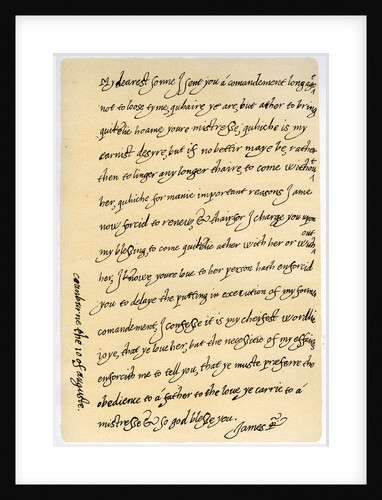 My dearest sonne I sent you a comandement long ago
not to loose tyme, quhaire ye are, but ather to bring
quikelie hoame youre mistresse, quhiche is my
earnist desyre, but if no bettir maye be, rather
then to linger any longer thaire, to come withoute
her, quhiche for manie important reasons I ame
now forcid to renew, & thairfor I charge you upon
my blessing, to come quikelie ather with her or without
her, I knowe youre loue to her person hath enforcid
you to delaye the putting in execution of my former
comandement, I confesse it is my cheifest wordlie
ioye, that ye loue her, but the necessitie of my effaires
enforcith me to tell you, that ye muste præferre the
obedience to a father to the loue ye carrie to a
mistresse & so god blesse you.
James R
cranburne the 10 of auguste.